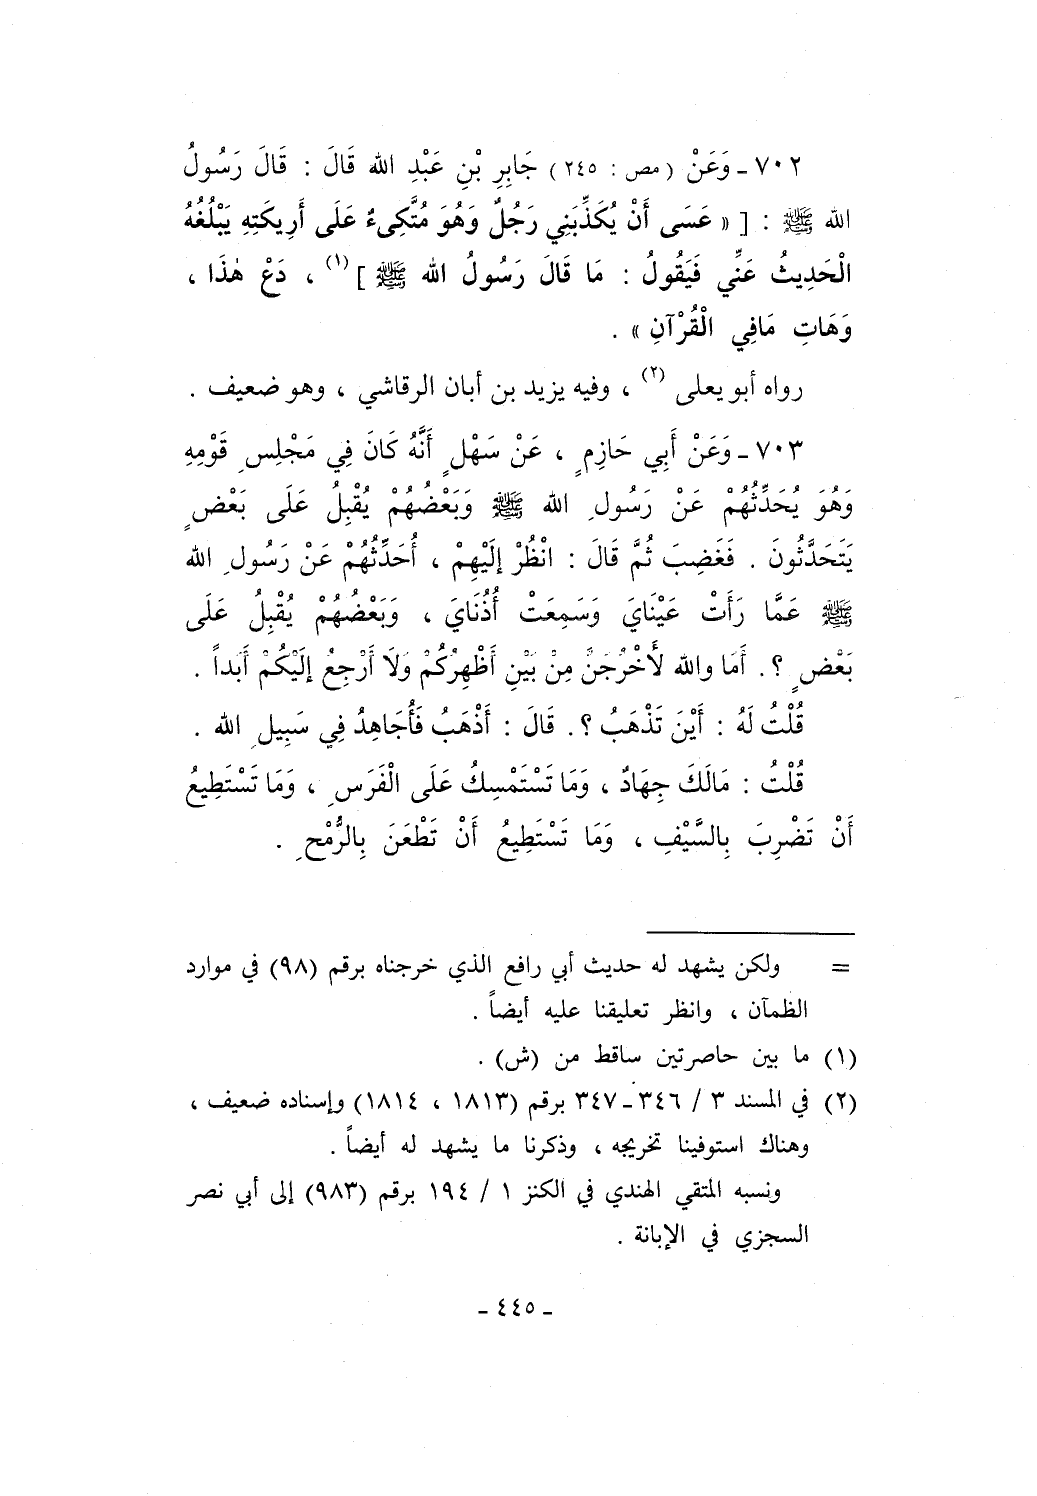 ٧٠٢ ـ وَعَنْ (مص : ٢٤٥) جَابِرِ بْنِ عَبْدِ الله قَالَ : قَالَ رَسُولُ
الله ﷺ : [« عَسَى أَنْ يُكَذِّبَنِي رَجُلٌ وَهُوَ مُتَّكِىءٌ عَلَى أَرِيكَتِهِ يَبْلُغُهُ
الْحَدِيثُ عَنِّي فَيَقُولُ : مَا قَالَ رَسُولُ الله ﷺ ](١) ، دَعْ هٰذَا ،
وَهَاتِ مَافِي الْقُرْآنِ » .
رواه أبو يعلى (٢) ، وفيه يزيد بن أبان الرقاشي ، وهو ضعيف .
٧٠٣ ـ وَعَنْ أَبِي حَازِمٍ ، عَنْ سَهْلٍ أَنَّهُ كَانَ فِي مَجْلِسِ قَوْمِهِ
وَهُوَ يُحَدِّثُهُمْ عَنْ رَسُولِ الله ﷺ وَبَعْضُهُمْ يُقْبِلُ عَلَى بَعْضٍ
يَتَحَدَّثُونَ . فَغَضِبَ ثُمَّ قَالَ : انْظُرْ إِلَيْهِمْ ، أُحَدِّثُهُمْ عَنْ رَسُولِ الله
ﷺ عَمَّا رَأَتْ عَيْنَايَ وَسَمِعَتْ أُذُنَايَ ، وَبَعْضُهُمْ يُقْبِلُ عَلَى
بَعْضٍ ؟. أَمَا والله لأَخْرُجَنَّ مِنْ بَيْنِ أَظْهِرُكُمْ وَلاَ أَرْجِعُ إِلَيْكُمْ أَبَداً .
قُلْتُ لَهُ : أَيْنَ تَذْهَبُ ؟. قَالَ : أَذْهَبُ فَأُجَاهِدُ فِي سَبِيلِ الله .
قُلْتُ : مَالَكَ جِهَادٌ ، وَمَا تَسْتَمْسِكُ عَلَى الْفَرَسِ ، وَمَا تَسْتَطِيعُ
أَنْ تَضْرِبَ بِالسَّيْفِ ، وَمَا تَسْتَطِيعُ أَنْ تَطْعَنَ بِالرُّمْحِ .
= ولكن يشهد له حديث أبي رافع الذي خرجناه برقم (٩٨) في موارد
الظمآن ، وانظر تعليقنا عليه أيضاً .
(١) ما بين حاصرتين ساقط من (ش) .
(٢) في المسند ٣ / ٣٤٦ ـ ٣٤٧ برقم (١٨١٣ ، ١٨١٤) وإسناده ضعيف ،
وهناك استوفينا تخريجه ، وذكرنا ما يشهد له أيضاً .
ونسبه المتقي الهندي في الكنز ١ / ١٩٤ برقم (٩٨٣) إلى أبي نصر
السجزي في الإبانة .
ـ ٤٤٥ ـ